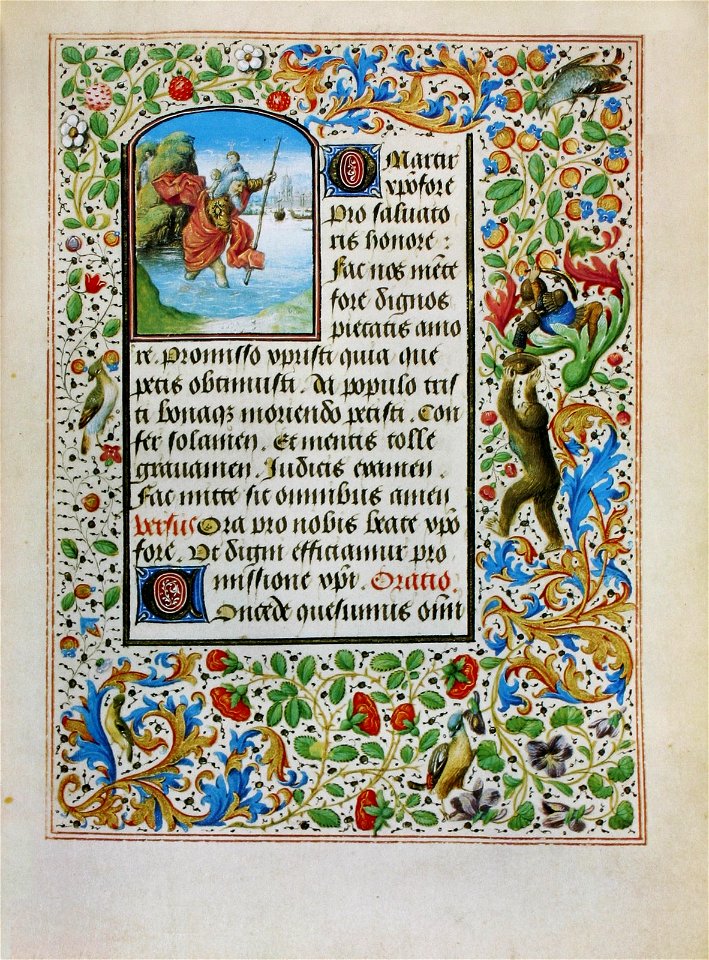 O Martir
xp̄ofore
pro saluato
ris honore :
Fac nos mēte
fore dignos
pietatis amo
re. Promisso xpristi quia que
petis obtinuisti. Da populo tris
ti bonaqz moriendo petisti. Con
fer solamen. Et mentis tolle
grauamen. Iudicis examen.
Fac mitte sit omnibus amen
Versus Ora pro nobis beate xp̄o
fore. Vt digni efficiamur pro
missione xp̄i. Oratio.
Concede quesumus om̄i